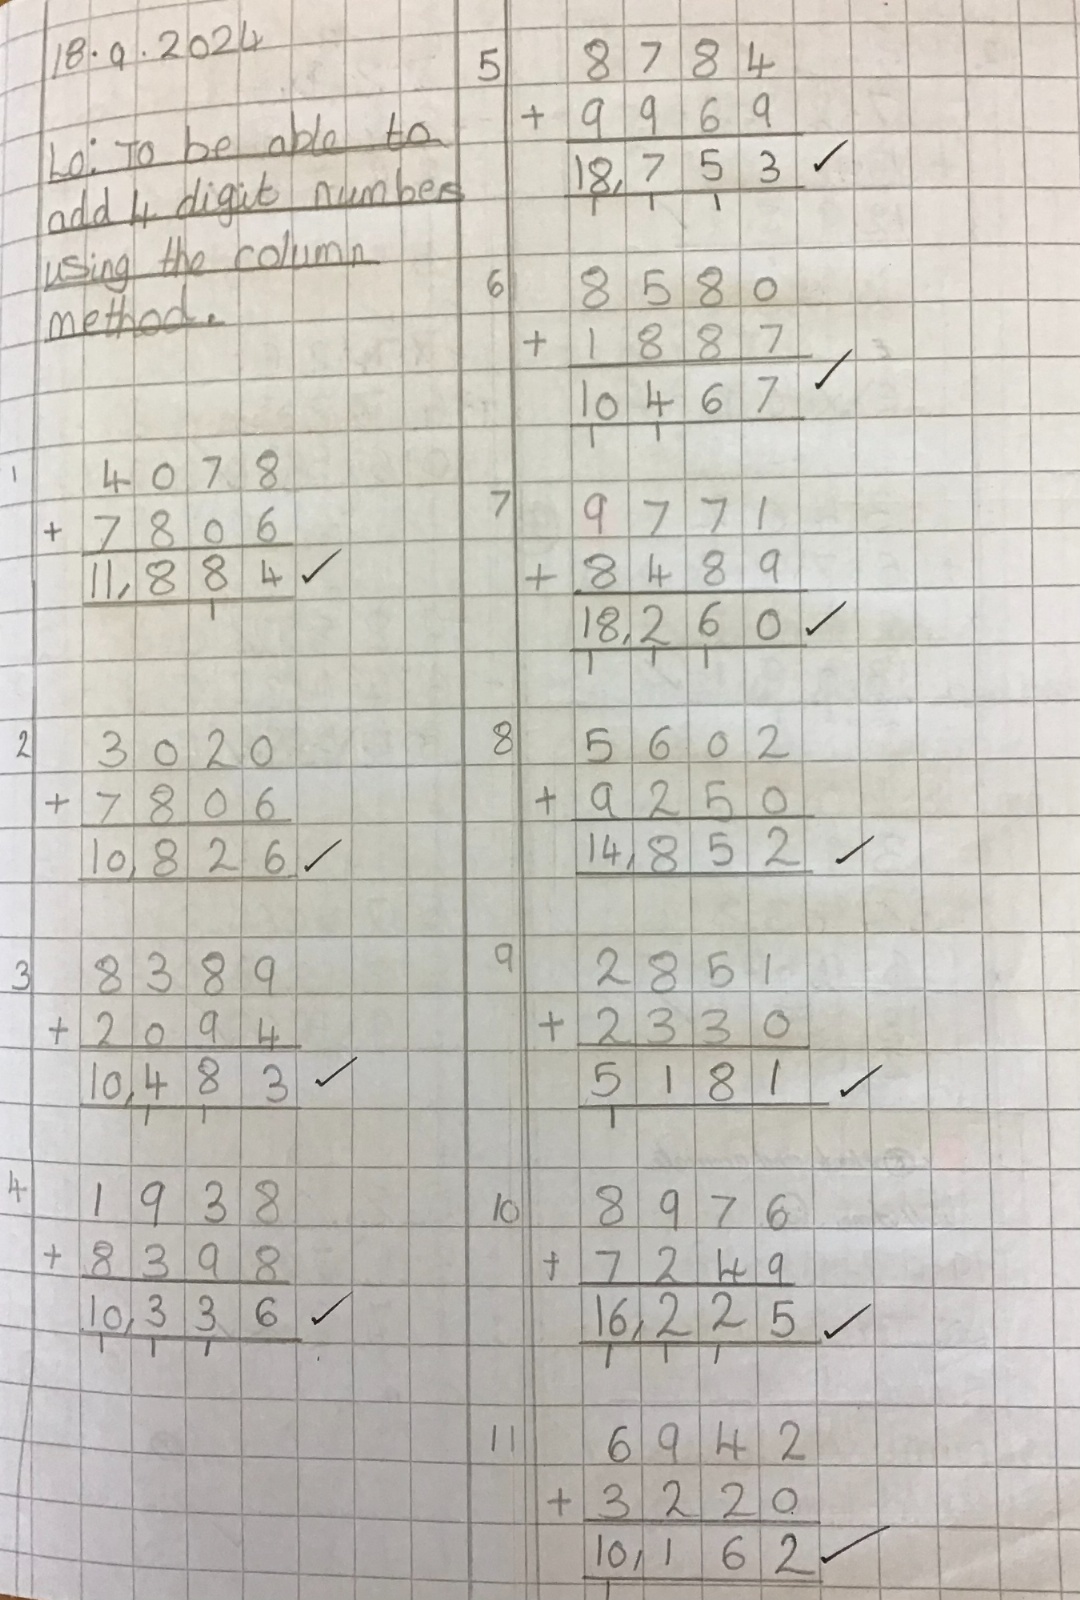 18.9.2024
Lo: To be able to
add 4 digit numbers
using the column
method.
1
4 0 7 8
+ 7 8 0 6
11,8 8 4 ✓
1
2
3 0 2 0
+ 7 8 0 6
10,8 2 6 ✓
3
8 3 8 9
+ 2 0 9 4
10,4 8 3 ✓
1 1
4
1 9 3 8
+ 8 3 9 8
10,3 3 6 ✓
1 1 1
5
8 7 8 4
+ 9 9 6 9
18,7 5 3 ✓
1 1 1
6
8 5 8 0
+ 1 8 8 7
10 4 6 7 ✓
1 1
7
9 7 7 1
+ 8 4 8 9
18,2 6 0 ✓
1 1 1
8
5 6 0 2
+ 9 2 5 0
14,8 5 2 ✓
9
2 8 5 1
+ 2 3 3 0
5 1 8 1 ✓
1
10
8 9 7 6
+ 7 2 4 9
16,2 2 5 ✓
1 1 1
11
6 9 4 2
+ 3 2 2 0
10,1 6 2 ✓
1